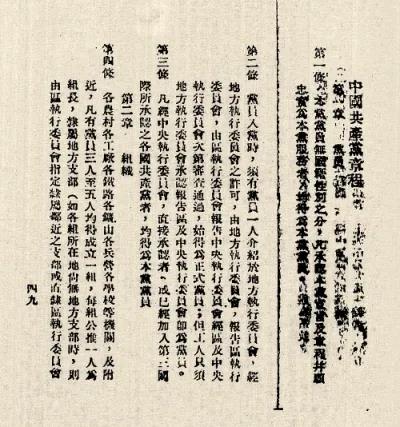 中國共產黨章程
第一章 黨員
第一條 本黨黨員無國籍性別之分，凡承認本黨宣言及章程并願
忠實爲本黨服務者，均得爲本黨黨員。
第二條 黨員入黨時，須有黨員一人介紹於地方執行委員會，經
地方執行委員會之許可，由地方執行委員會，報告區執行
委員會，由區執行委員會報告中央執行委員會經區及中央
執行委員會次第審查通過，始得爲正式黨員；但工人只須
地方執行委員會承認報告區及中央執行委員會卽爲黨員。
第三條 凡經中央執行委員會，直接承認者，或已經加入第三國
際所承認之各國共產黨者，均得爲本黨黨員
第二章 組織
第四條 各農村各工廠各鐵路各鑛山各兵營各學校等機關，及附
近，凡有黨員三人至五人均得成立一組，每組公推一人爲
組長，隸屬地方支部，（如各組所在地尙無地方支部時，則
由區執行委員會指定隸屬鄰近之支部或直隸區執行委員會
四九